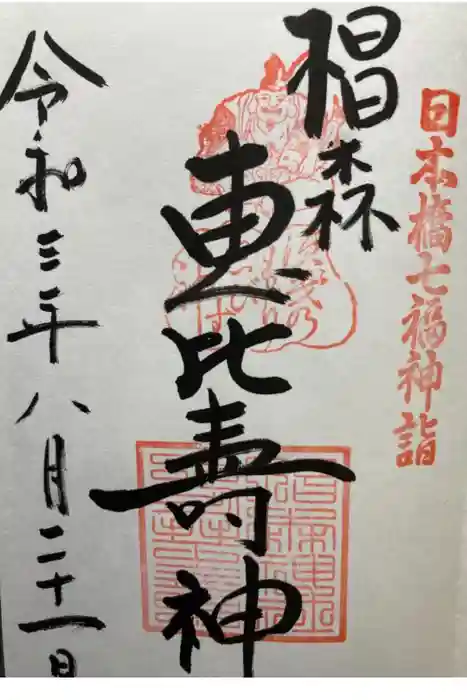 日本橋七福神詣
椙森
恵比壽神
令和三年八月二十一日